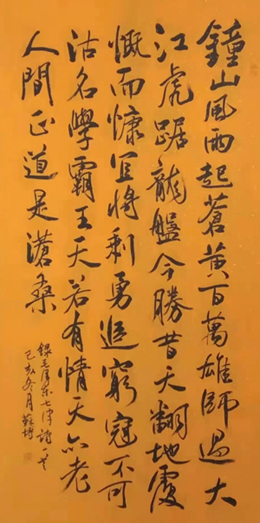 鐘山風雨起蒼黃百萬雄師過大
江虎踞龍盤今勝昔天翻地覆
慨而慷宜將剩勇追窮寇不可
沽名學霸王天若有情天亦老
人間正道是滄桑
錄毛澤東七律詩一首
己亥冬月